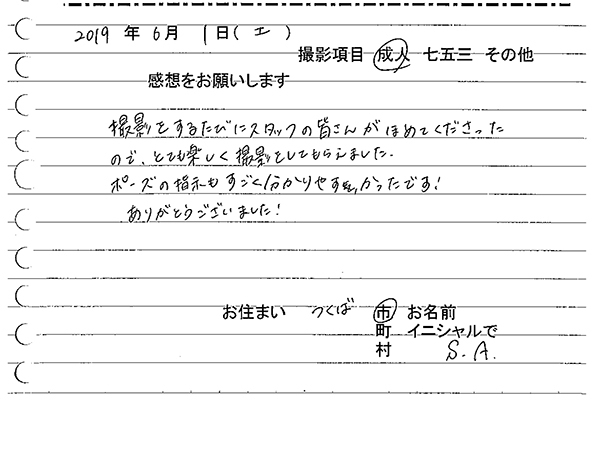 2019 年 6月 1日(土)
撮影項目 成人 七五三 その他
感想をお願いします
撮影をするたびにスタッフの皆さんがほめてくださった
ので、とても楽しく撮影をしてもらえました。
ポーズの指示もすごく分かりやすかったです!
ありがとうございました!
お住まい つくば 市 お名前
町 イニシャルで
村 S.A.